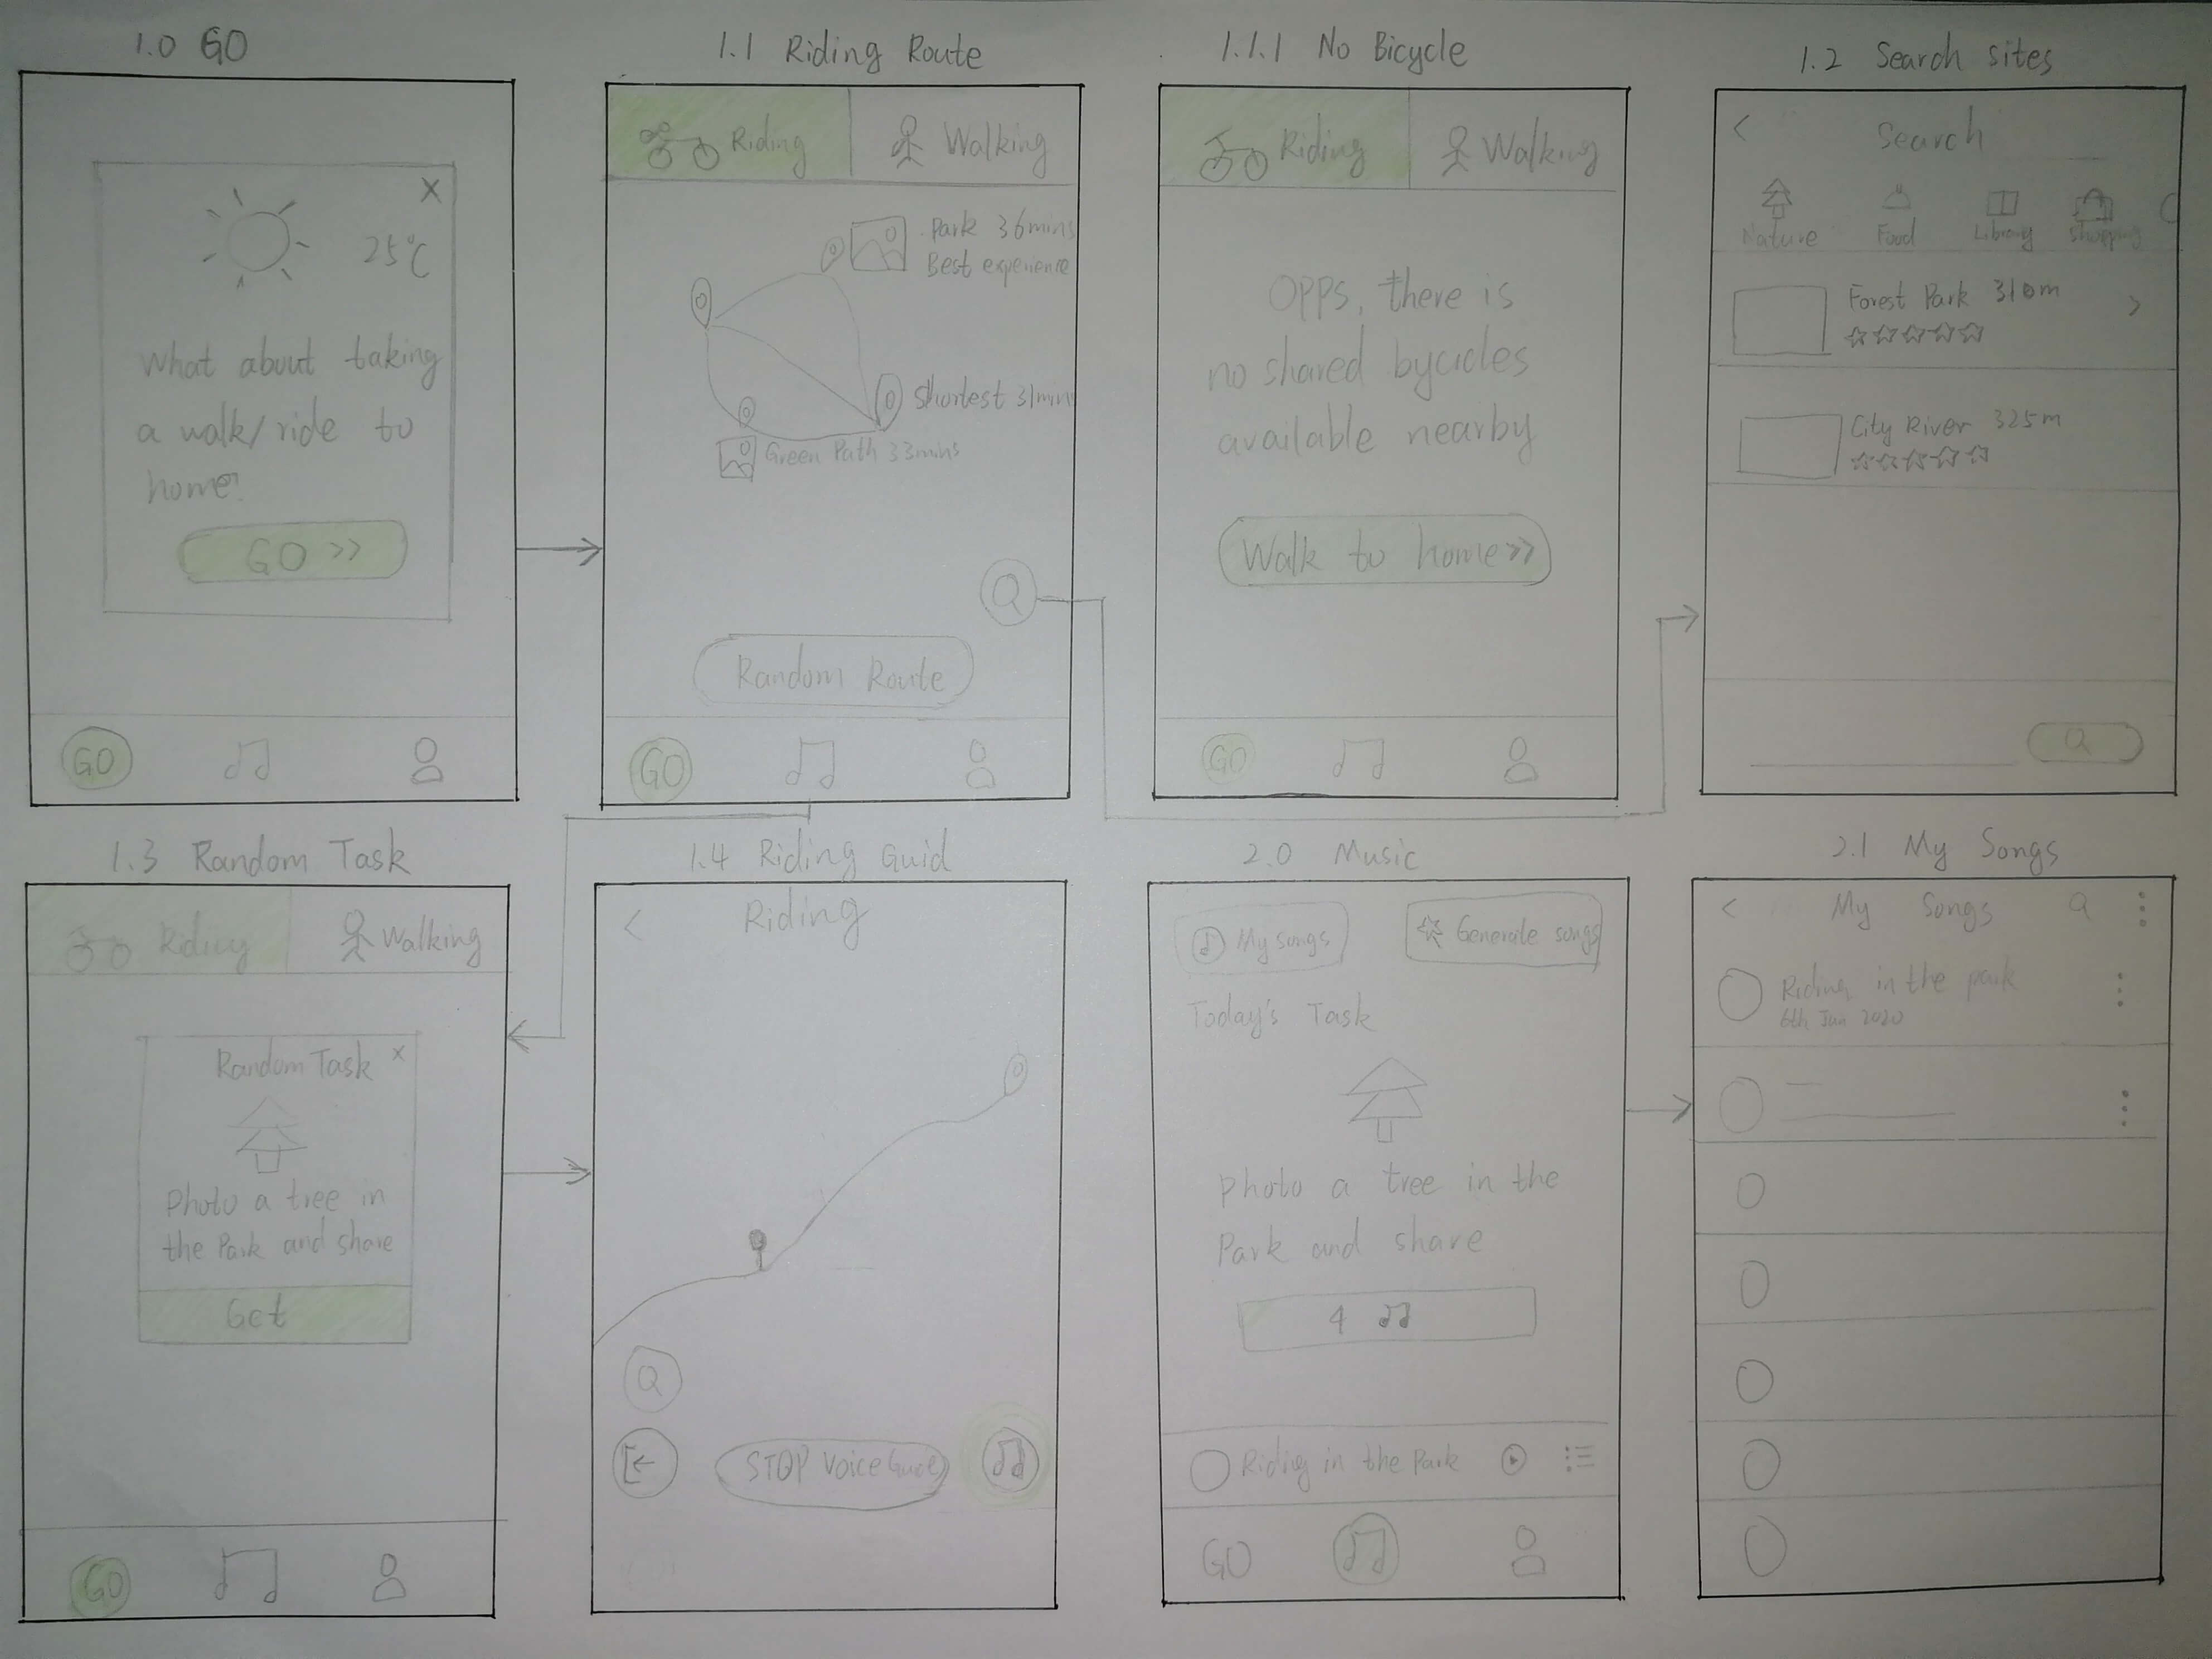 1.0 GO
25°C
What about taking
a walk/ride to
home?
GO >>
GO
1.1 Riding Route
Riding
Walking
Park 36mins
Best experience
Shortest 31min
Green Path 33mins
Random Route
GO
1.1.1 No Bicycle
Riding
Walking
OPPS, there is
no shared bycicles
available nearby
Walk to home>>
GO
1.2 Search sites
< Search
Nature Food Library Shopping
Forest Park 310m >
City River 325m
1.3 Random Task
Riding
Walking
Random Task x
Photo a tree in
the Park and share
Get
GO
1.4 Riding Guid
< Riding
STOP Voice Guide
2.0 Music
My songs
Generate songs
Today's Task
Photo a tree in the
Park and share
4
Riding in the Park
GO
2.1 My Songs
< My Songs
Riding in the park
6th Jan 2020